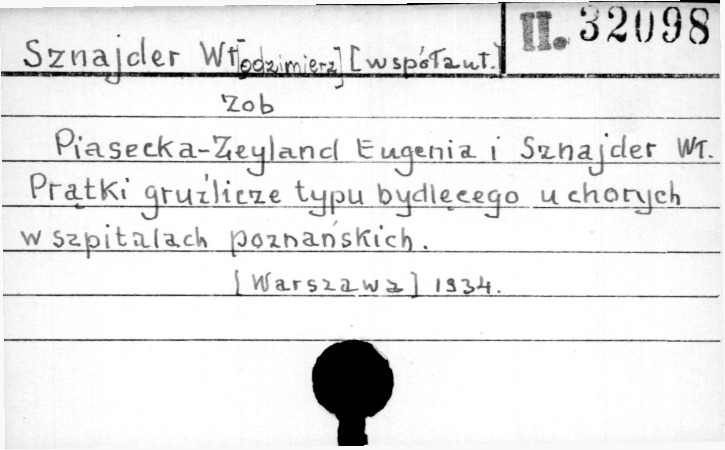 II. 32098
Sznajder Wł[odzimierz] [współaut.]
Zob
Piasecka-Zeyland Eugenia i Sznajder Wł.
Prątki gruźlicze typu bydlęcego u chorych
w szpitalach poznańskich.
[Warszawa] 1934.